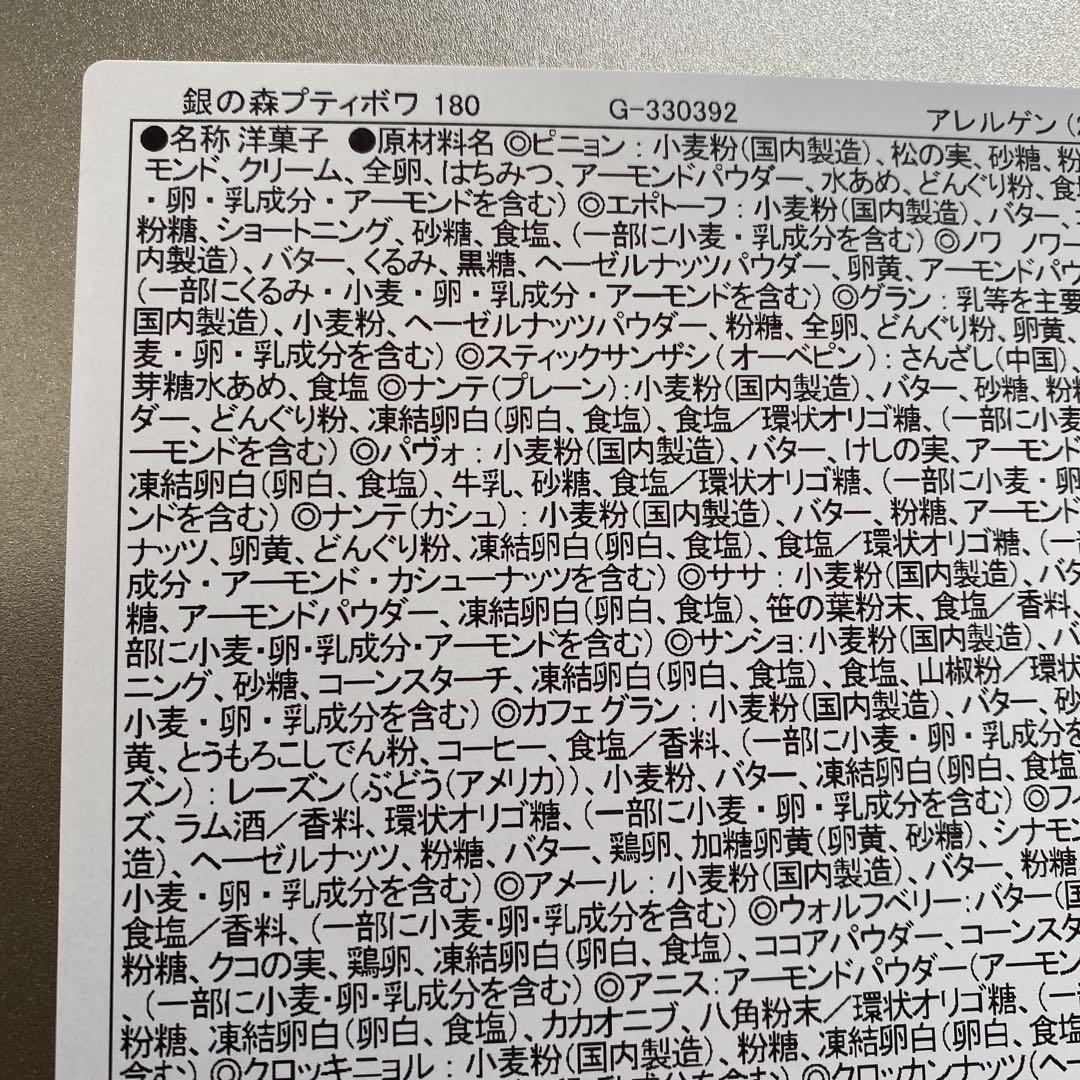 銀の森プティボワ 180 G-330392 アレルゲン(
●名称 洋菓子 ●原材料名 ◎ピニョン：小麦粉(国内製造)、松の実、砂糖、粉
モンド、クリーム、全卵、はちみつ、アーモンドパウダー、水あめ、どんぐり粉、食塩
・卵・乳成分・アーモンドを含む) ◎エポトーフ：小麦粉(国内製造)、バター、
粉糖、ショートニング、砂糖、食塩、(一部に小麦・乳成分を含む) ◎ノワ ノワー
内製造)、バター、くるみ、黒糖、ヘーゼルナッツパウダー、卵黄、アーモンドパウ
(一部にくるみ・小麦・卵・乳成分・アーモンドを含む) ◎グラン：乳等を主要
国内製造)、小麦粉、ヘーゼルナッツパウダー、粉糖、全卵、どんぐり粉、卵黄、
麦・卵・乳成分を含む) ◎スティックサンザシ(オーベピン)：さんざし(中国)、
芽糖水あめ、食塩 ◎ナンテ(プレーン)：小麦粉(国内製造)、バター、砂糖、粉糖
ダー、どんぐり粉、凍結卵白(卵白、食塩)、食塩／環状オリゴ糖、(一部に小麦
ーモンドを含む) ◎パヴォ：小麦粉(国内製造)、バター、けしの実、アーモンド
凍結卵白(卵白、食塩)、牛乳、砂糖、食塩／環状オリゴ糖、(一部に小麦・卵
ンドを含む) ◎ナンテ(カシュ)：小麦粉(国内製造)、バター、粉糖、アーモンド
ナッツ、卵黄、どんぐり粉、凍結卵白(卵白、食塩)、食塩／環状オリゴ糖、(一部
成分・アーモンド・カシューナッツを含む) ◎ササ：小麦粉(国内製造)、バタ
糖、アーモンドパウダー、凍結卵白(卵白、食塩)、笹の葉粉末、食塩／香料、
部に小麦・卵・乳成分・アーモンドを含む) ◎サンショ：小麦粉(国内製造)、バ
ニング、砂糖、コーンスターチ、凍結卵白(卵白、食塩)、食塩、山椒粉／環状
小麦・卵・乳成分を含む) ◎カフェグラン：小麦粉(国内製造)、バター、砂
黄、とうもろこしでん粉、コーヒー、食塩／香料、(一部に小麦・卵・乳成分を
ズン)：レーズン(ぶどう(アメリカ))、小麦粉、バター、凍結卵白(卵白、食塩
ズ、ラム酒／香料、環状オリゴ糖、(一部に小麦・卵・乳成分を含む) ◎フィ
造)、ヘーゼルナッツ、粉糖、バター、鶏卵、加糖卵黄(卵黄、砂糖)、シナモン
小麦・卵・乳成分を含む) ◎アメール：小麦粉(国内製造)、バター、粉糖
食塩／香料、(一部に小麦・卵・乳成分を含む) ◎ウォルフベリー：バター(国
粉糖、クコの実、鶏卵、凍結卵白(卵白、食塩)、ココアパウダー、コーンスタ
、(一部に小麦・卵・乳成分を含む) ◎アニス：アーモンドパウダー(アーモン
粉糖、凍結卵白(卵白、食塩)、カカオニブ、八角粉末／環状オリゴ糖、(一
含む) ◎クロッキニョル：小麦粉(国内製造)、粉糖、凍結卵白(卵白、食塩
乳成分を含む) ◎クロッカンナッツ(ヘー